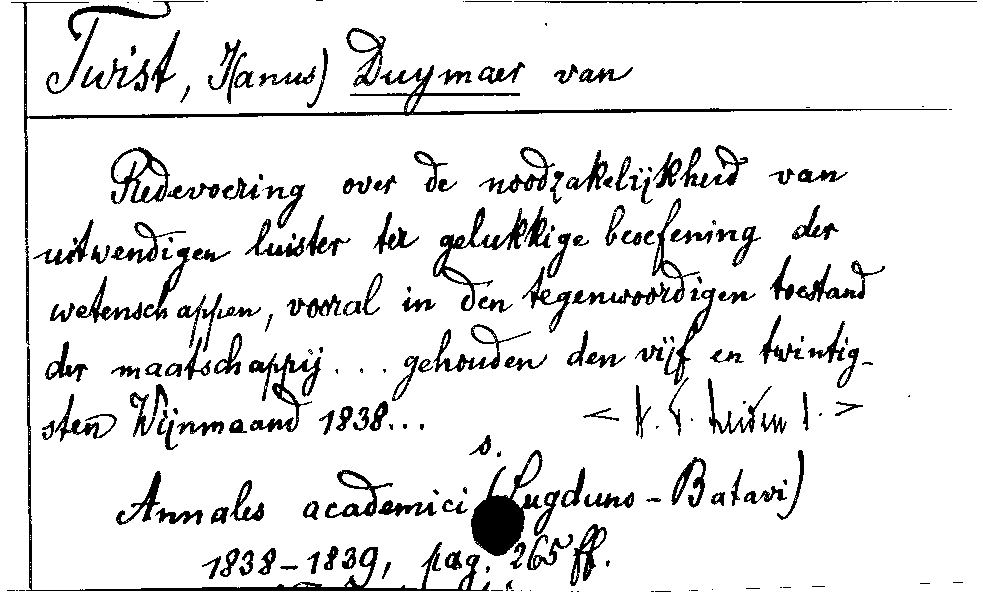 Twist, H(anus) Duymaer van
Redevoering over de noodzakelijkheid van
uitwendigen luister ter gelukkige beoefening der
wetenschappen, vooral in den tegenwoordigen toestand
der maatschappij ... gehouden den vijf en twintig-
sten Wijnmaand 1838...
Leiden 1.
s.
Annales academici (Lugduno-Batavi)
1838-1839, pag. 265 ff.